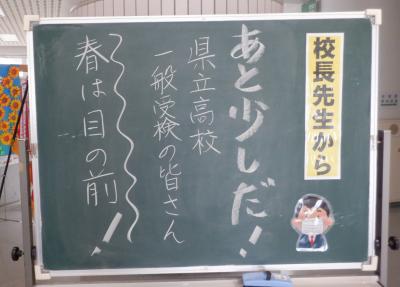 校長先生から
あと少しだ!
県立高校
一般受検の皆さん
春は目の前!